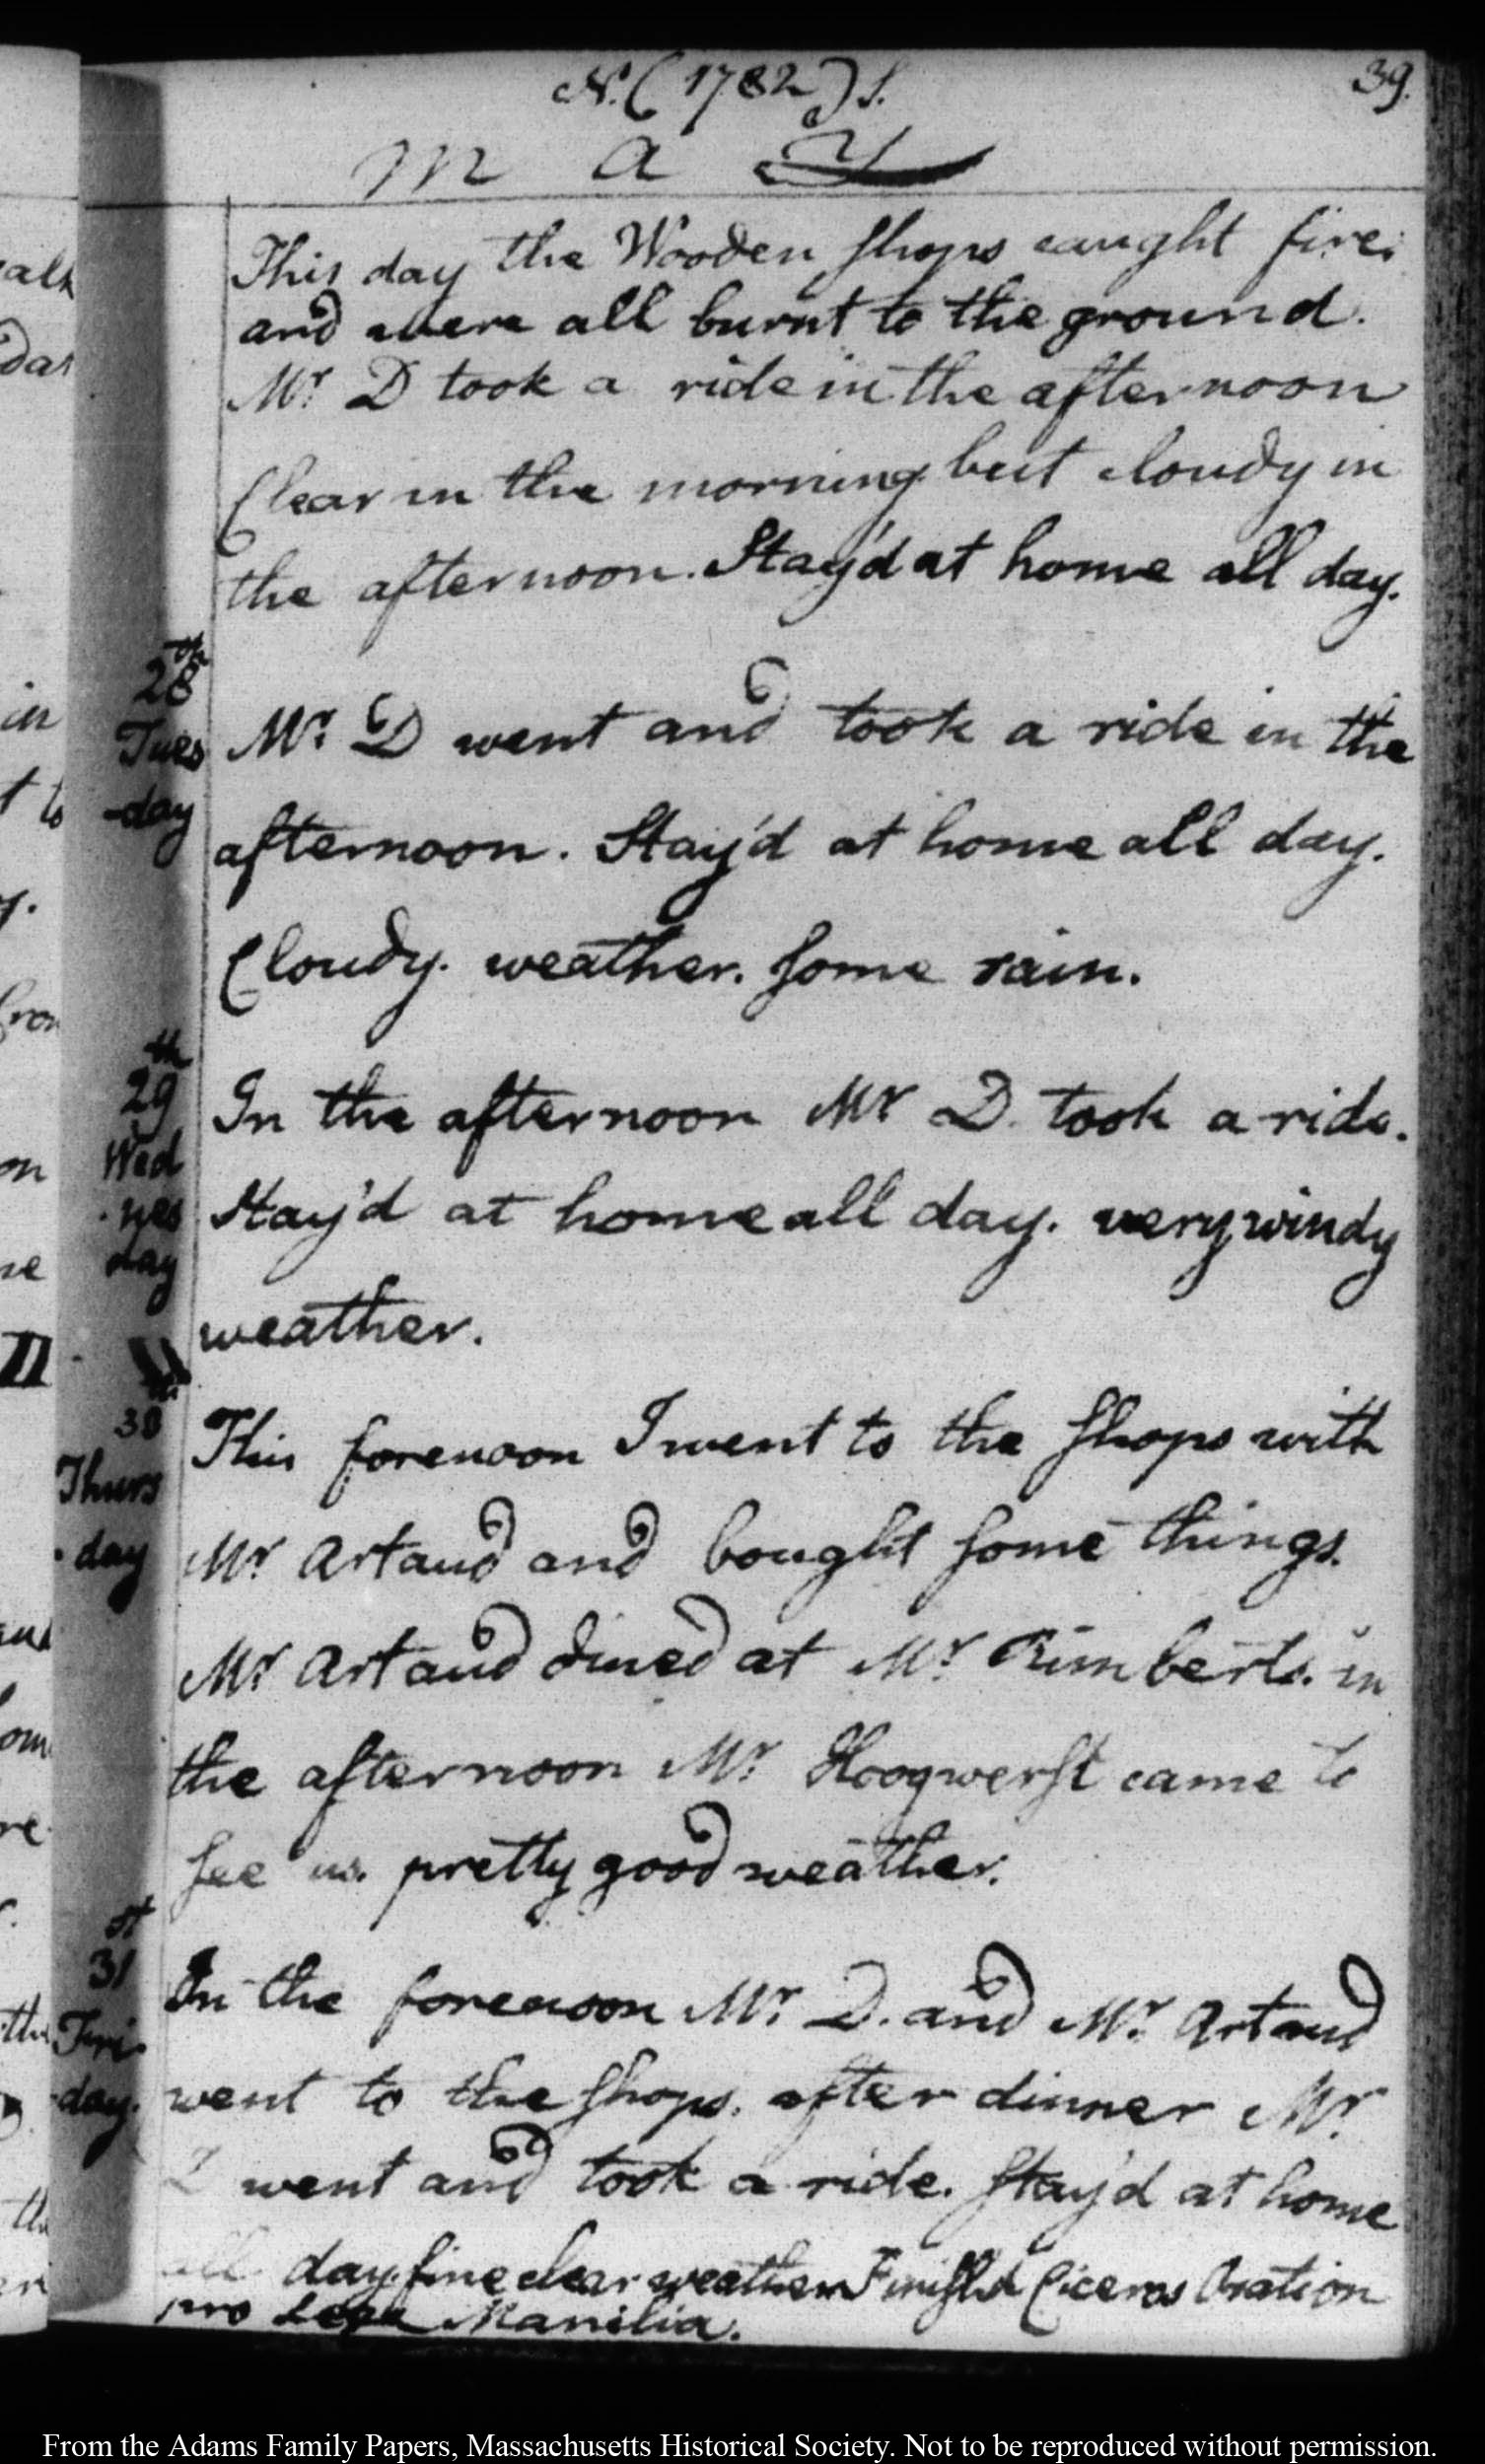 N. (1782) S.
39.
May
This day the Wooden shops caught fire;
and were all burnt to the ground.
Mr D took a ride in the afternoon
Clear in the morning but cloudy in
the afternoon. Stay'd at home all day.
28th
Tues
-day
Mr. D went and took a ride in the
afternoon. Stay'd at home all day.
Cloudy. weather. some rain.
29th
Wed
-nes
day
In the afternoon Mr D. took a ride.
Stay'd at home all day. very windy
weather.
30
Thurs
-day
This forenoon I went to the shops with
Mr Artaud and bought some things.
Mr Artaud dined at Mr Rimberts. in
the afternoon Mr Hoogwerst came to
see us. pretty good weather.
31st
Fri-
day.
In the forenoon Mr D. and Mr. Artaud
went to the shops. after dinner Mr.
D went and took a ride. stay'd at home
all day. fine clear weather. Finish'd Ciceros Oration
pro Lege Manilia.
From the Adams Family Papers, Massachusetts Historical Society. Not to be reproduced without permission.